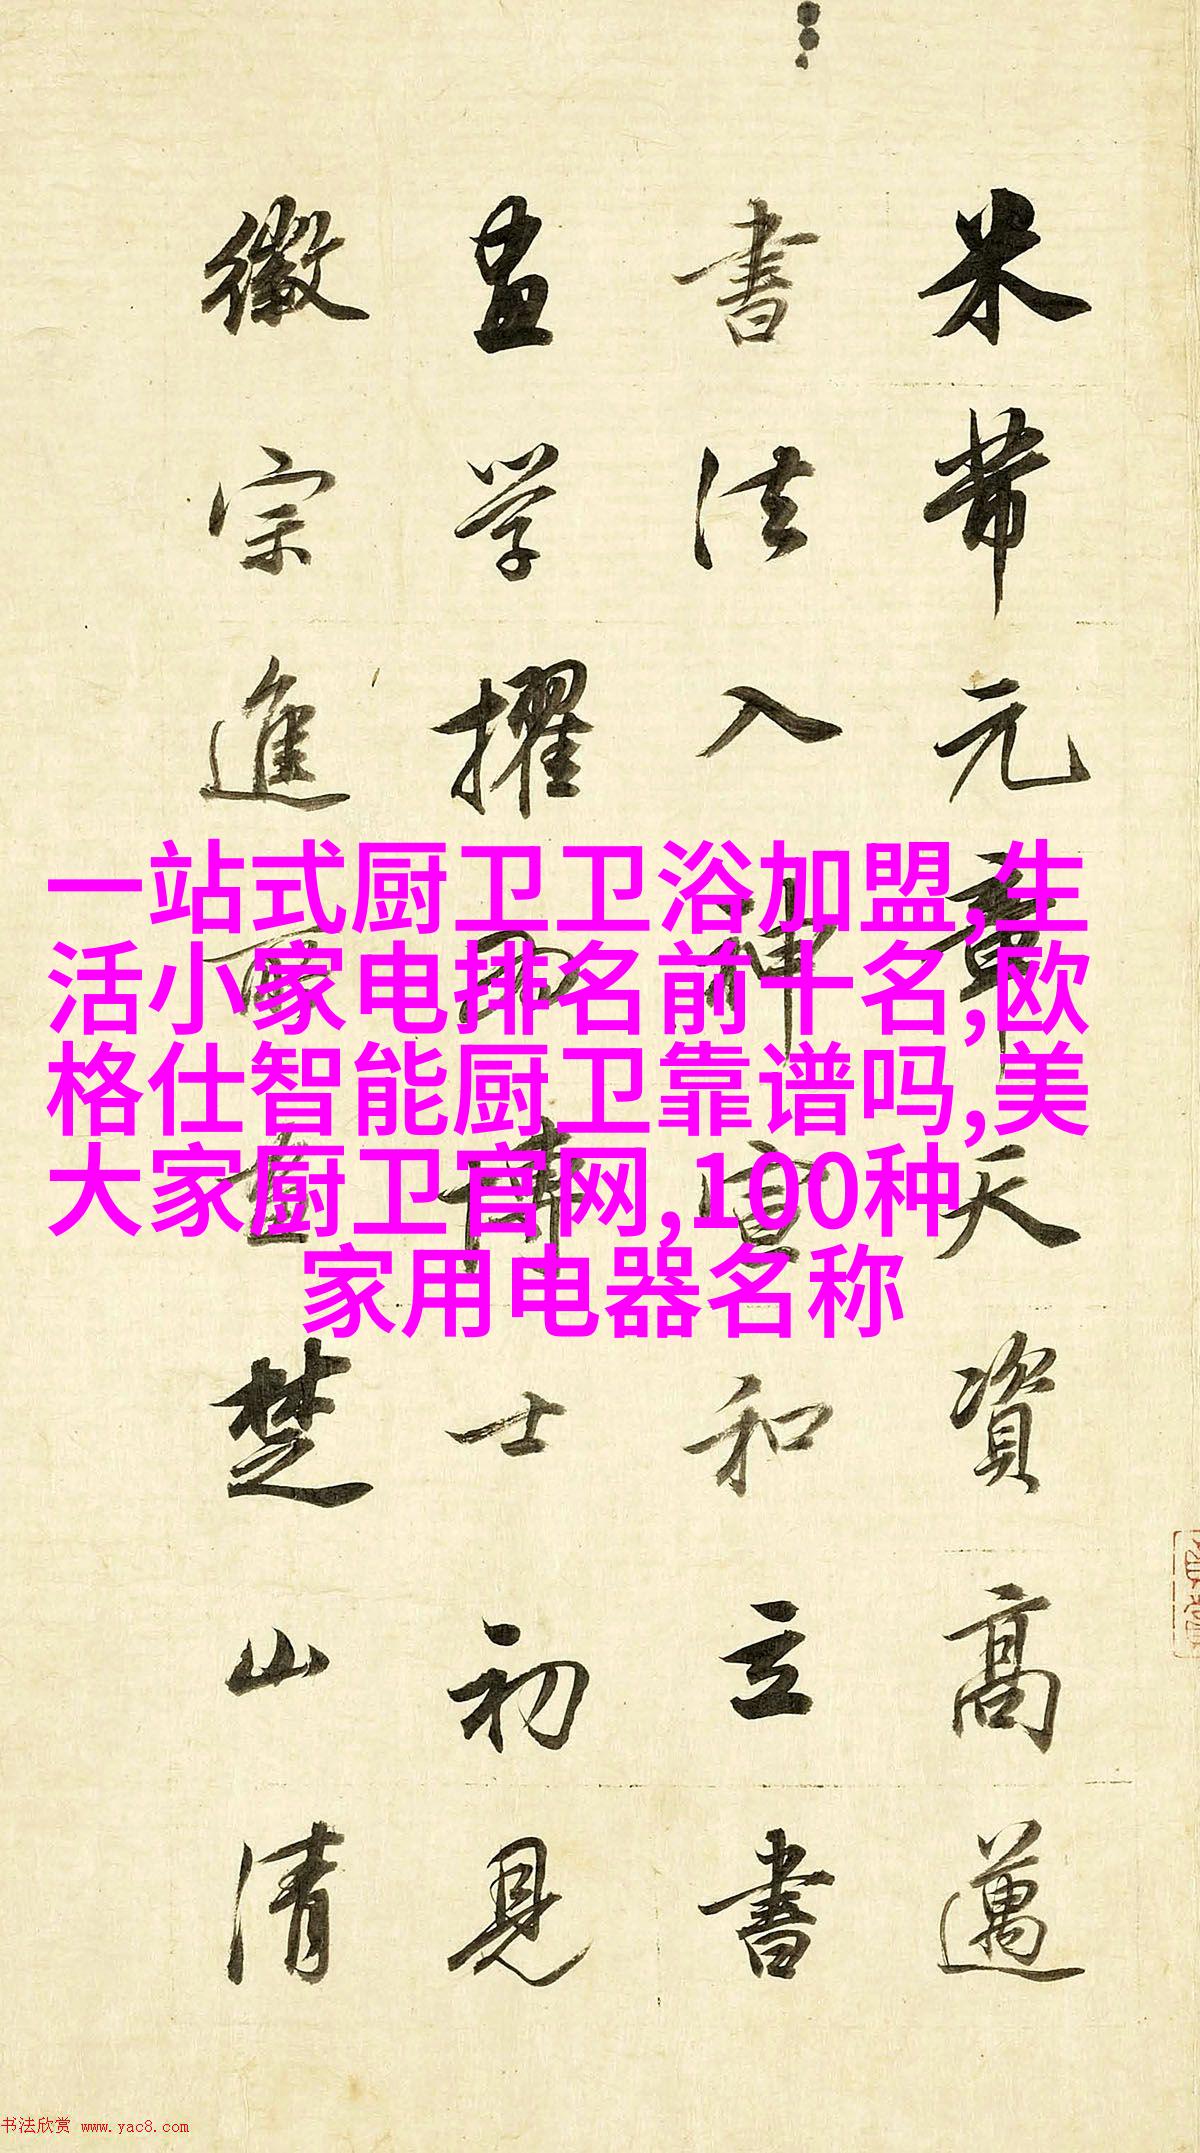 米芾元章天資高邁
書法入神宣和立書
畫学擢博士初見
徽宗進所畫楚山清
一站式厨卫卫浴加盟,生
活小家电排名前十名,欧
格仕智能厨卫靠谱吗,美
大家厨卫官网,100种
家用电器名称
书法欣赏 www.yac8.com